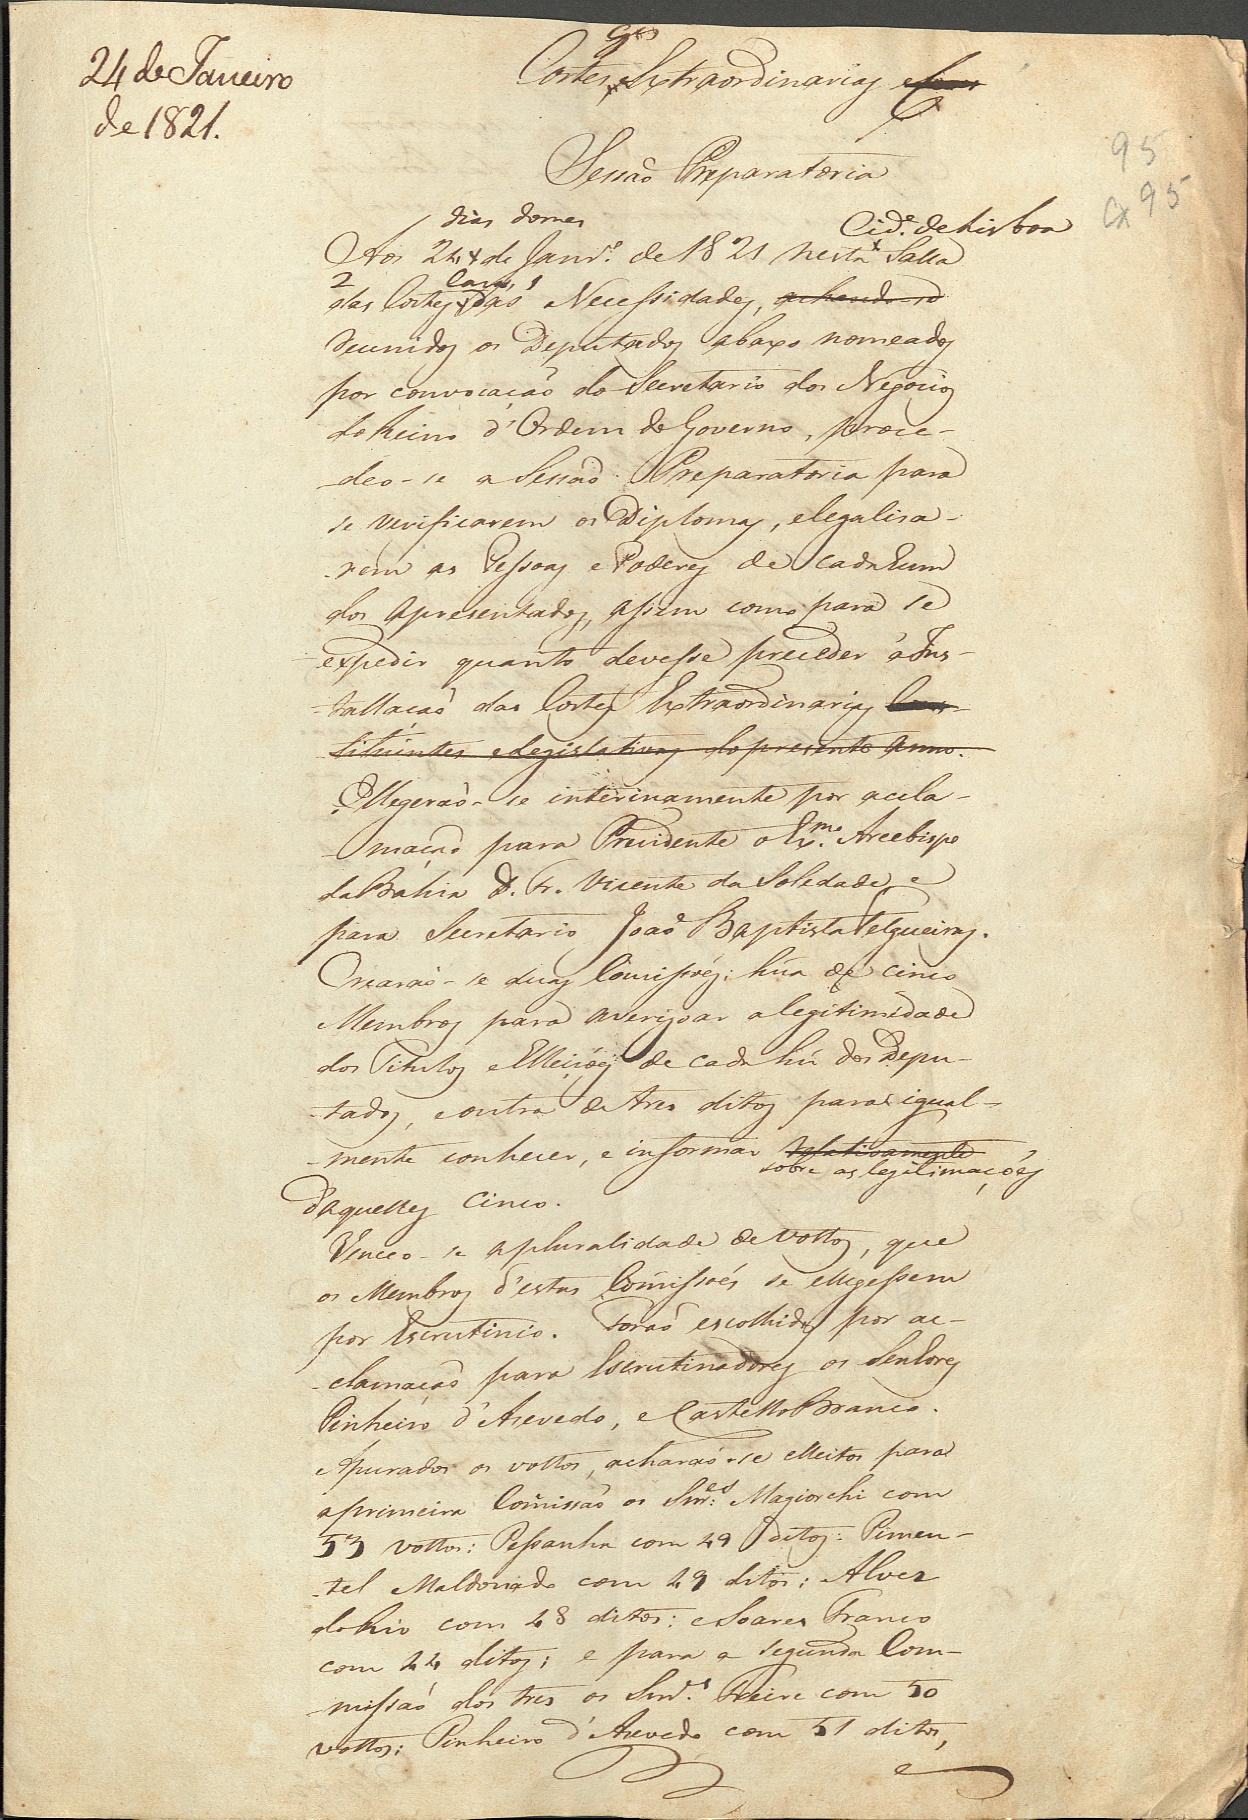 24 de Janeiro
de 1821.
Ges
Cortes Extraordinarias
Sessaõ Preparatoria
95
Cx 95
dias do mes
Cid.e de Lisboa
Aos 24 de Janr.o de 1821 nesta Salla
2
Casas
das Cortes das Necessidades, achando se
reunidos os Deputados abaxo nomeados
por convocaçaõ do Secretario dos Negocios
do Reino d'Ordem do Governo, proce-
deo-se a Sessaõ Preparatoria para
se verificarem os Diplomas, e legalisa-
rem as Pessoas e Poderes de cada hum
dos apresentados, assim como para se
expedir quanto devesse preceder á Ins-
tallacaõ das Cortes Extraordinarias Cons-
tituintes e Legislativas do presente Anno.
Ellegeraõ-se interinamente por acla-
maçaõ para Presidente o Ex.mo Arcebispo
da Bahia D. Fr. Vicente da Soledade, e
para Secretario Joaõ Baptista Felgueiras.
Crearaõ-se duas Comissoẽs: hũa de cinco
Membros para averigoar a legitimidade
dos Titulos e Elleiçoẽs de cada hũ dos Depu-
tados, e outra de tres ditos para igual-
mente conhecer, e informar relativamente
sobre as legitimaçoẽs
d'aquelles cinco.
Venceo-se a pluralidade de vottos, que
os Membros d'estas Comissoẽs se ellegessem
por Escrutinio. Foraõ escolhidos por ac-
clamaçaõ para Escrutinadores os Senhores
Pinheiro d'Azevedo, e Castello Branco.
Apurados os vottos, acharaõ-se elleitos para
a primeira Comissaõ os Snr.es Magiochi com
53 vottos: Pessanha com 49 ditos: Pimen-
tel Maldonado com 49 ditos: Alves
do Rio com 48 ditos: e Soares Franco
com 44 ditos; e para a segunda Com-
missaõ dos tres os Snr.s Freire com 50
vottos: Pinheiro d'Azevedo com 51 ditos,
e